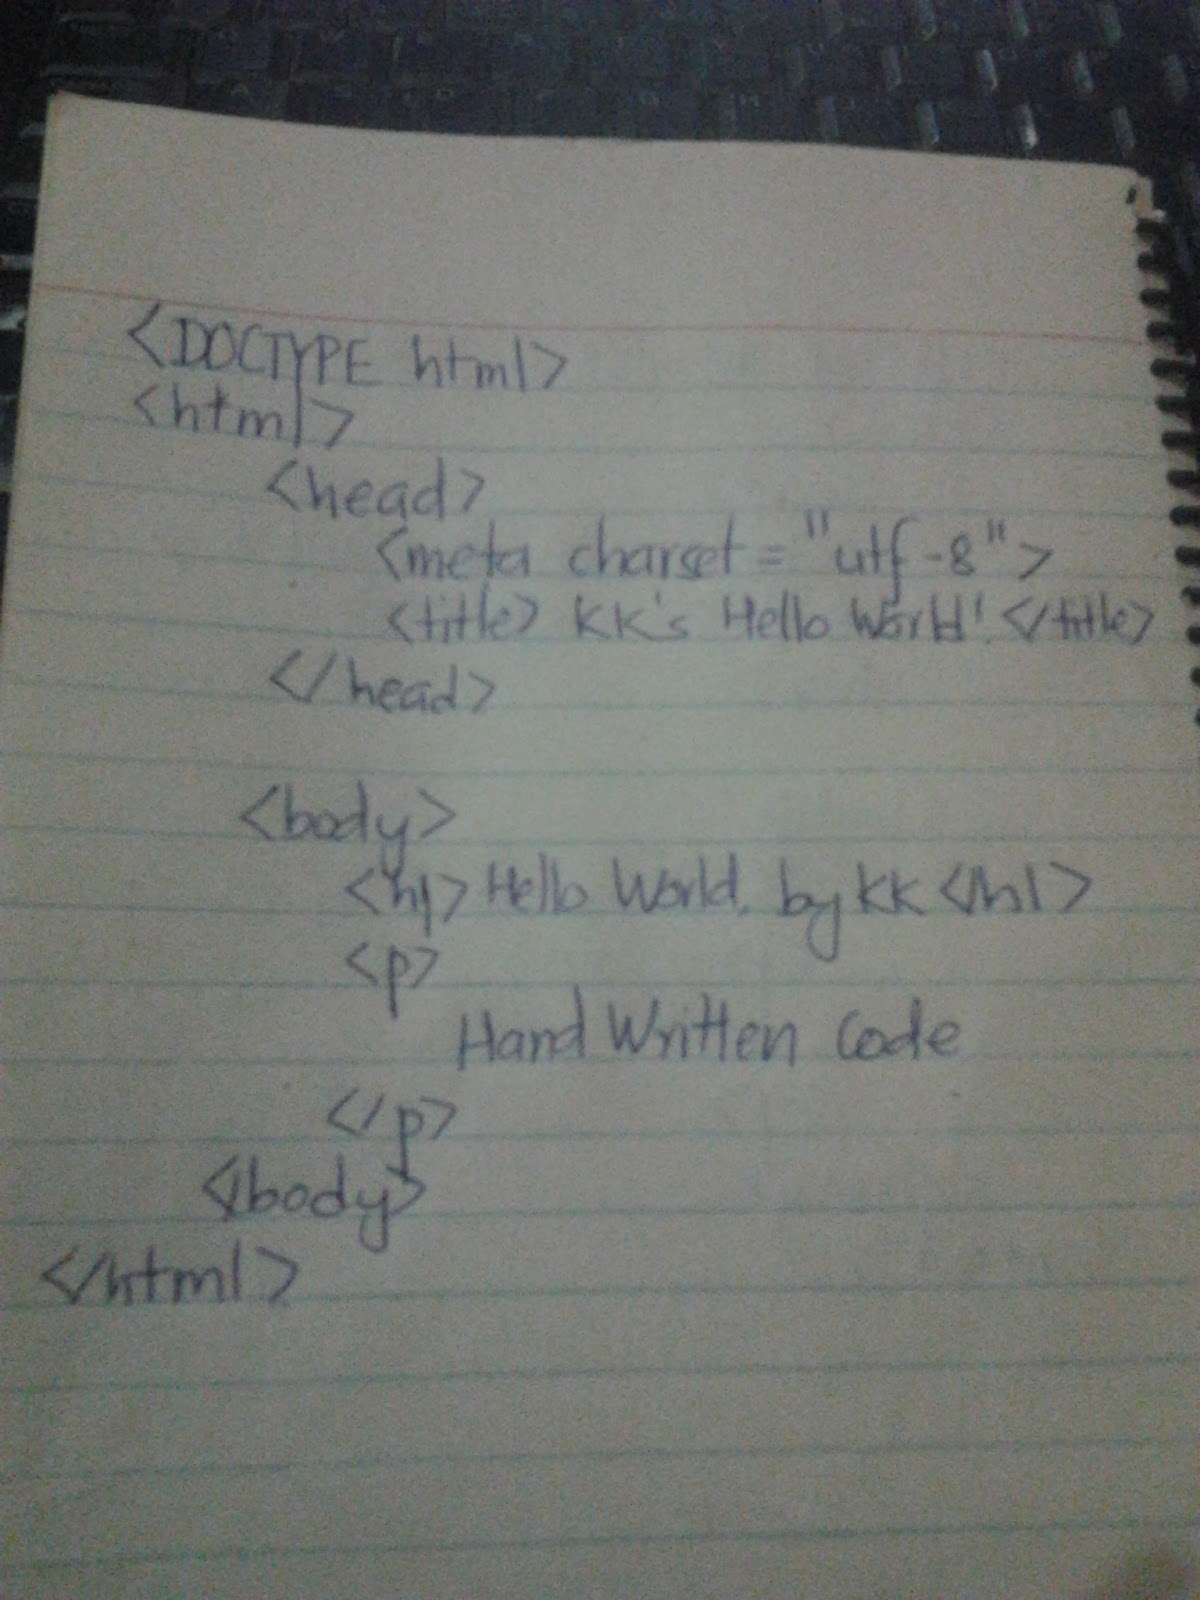 <DOCTYPE html>
<html>
<head>
<meta charset="utf-8">
<title> KK's Hello World! </title>
</head>
<body>
<h1> Hello World, by KK </h1>
<p>
Hand Written Code
</p>
</body>
</html>